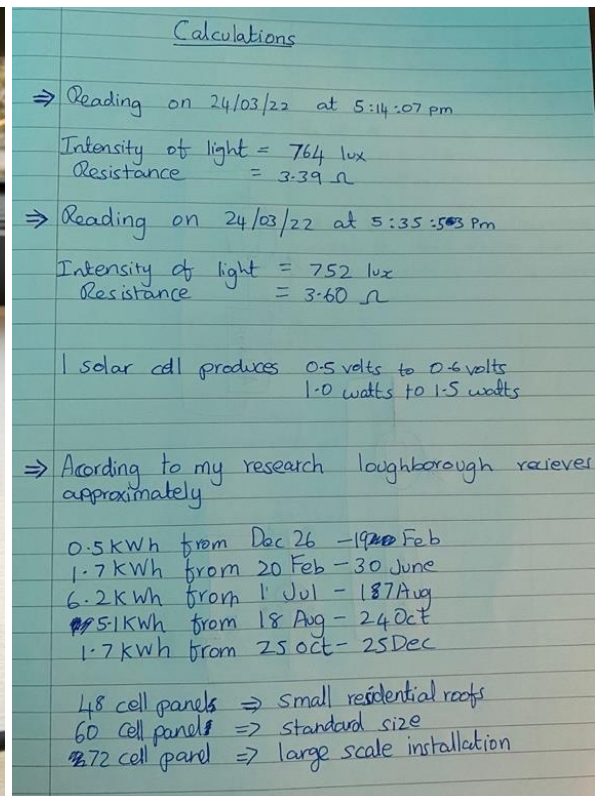 Calculations
⇒ Reading on 24/03/22 at 5:14:07 pm
Intensity of light = 764 lux
Resistance = 3.39 Ω
⇒ Reading on 24/03/22 at 5:35:53 Pm
Intensity of light = 752 lux
Resistance = 3.60 Ω
1 solar cell produces 0.5 volts to 0.6 volts
1.0 watts to 1.5 watts
⇒ Acording to my research loughborough recieves
approximately
0.5 KWh from Dec 26 - 19 Feb
1.7 KWh from 20 Feb - 30 June
6.2 KWh from 1 Jul - 17 Aug
5.1 KWh from 18 Aug - 24 Oct
1.7 KWh from 25 oct - 25 Dec
48 cell panels ⇒ small residential roofs
60 cell panels ⇒ standard size
72 cell panel ⇒ large scale installation